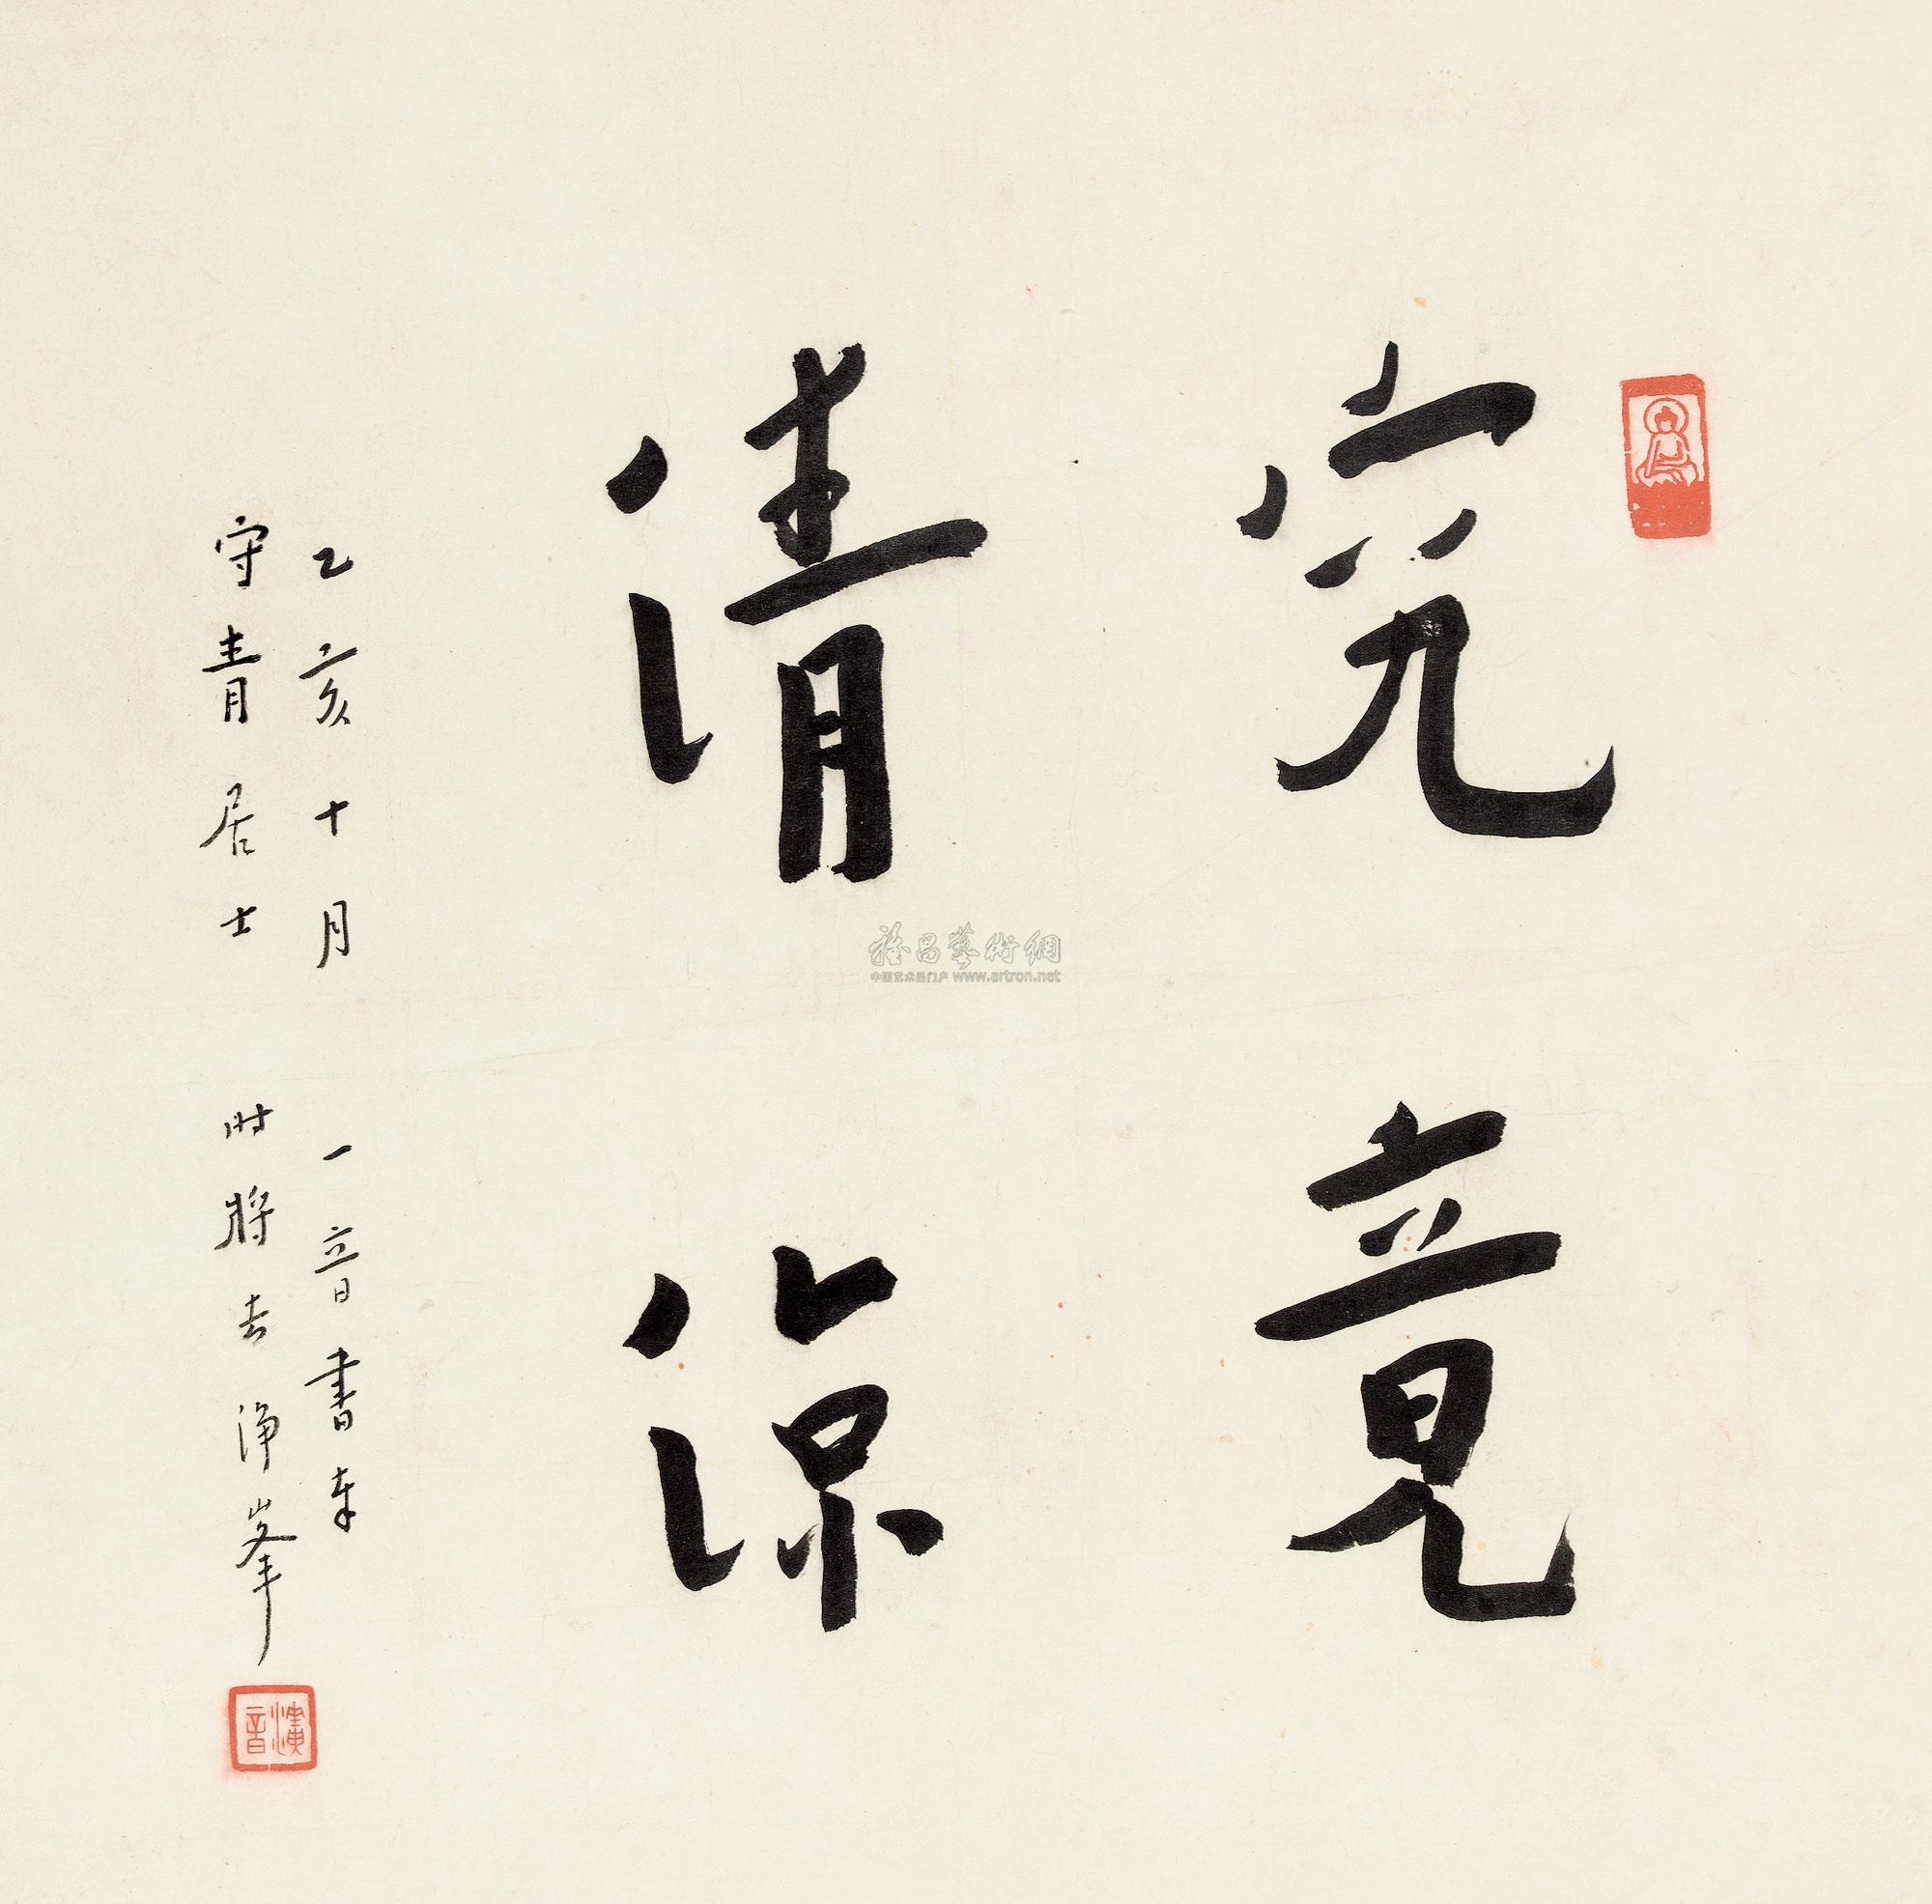 究竟
清涼
乙亥十月 一音書奉
守青居士 時將去淨峯
演音
雅昌藝術網
中国艺术品门户 www.artron.net